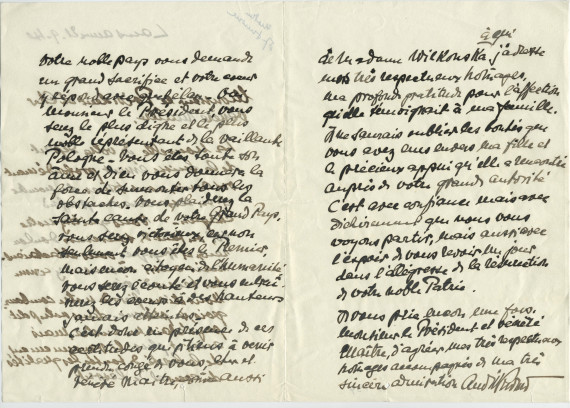 votre noble pays vous demande
un grand sacrifice et votre cœur
y répond
Monsieur le Président vous
serez le plus digne et le plus
noble représentant de la vaillante
Pologne. Vous êtes tout son
et Dieu vous donnera la
force de surmonter tous les
obstacles. Vous plaiderez la
sainte cause de votre Grand Pays.
vous serez victorieux car non
seulement vous êtes le Premier
mais encore citoyen de l'humanité
vous serez écouté et vous
des hauteurs
jamais atteintes.
C'est donc en présence de ces
certitudes que je tiens à venir
cher et
vénéré Maître, aussi
à qui
de Madame Wilkonska j'adresse
mes très respectueux hommages,
ma profonde gratitude pour l'affection
qu'elle témoignait à ma famille.
Je ne saurais oublier les bontés que
vous avez eues envers ma fille et
le précieux appui qu'elle a rencontré
auprès de votre grande autorité
C'est avec confiance mais avec
déchirement que nous vous
voyons partir, mais aussi avec
l'espoir de vous revoir un jour
dans l'allégresse de la résurrection
de votre noble Patrie.
Je vous prie encore une fois,
Monsieur le Président et vénéré
Maître, d'agréer mes très respectueux
hommages accompagnés de ma très
sincère admiration